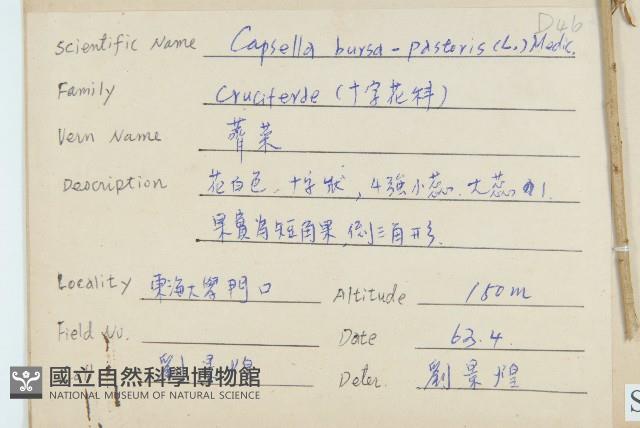 D46
Scientific Name Capsella bursa-pastoris (L.) Medic.
Family Cruciferae (十字花科)
Vern Name 薺菜
Description 花白色、十字狀,4強小蕊.大蕊1.
果實為短角果,倒三角形.
Locality 東海大學門口 Altitude 150m
Field No. Date 63.4.
劉景煌 Deter. 劉景煌
國立自然科學博物館
NATIONAL MUSEUM OF NATURAL SCIENCE
S